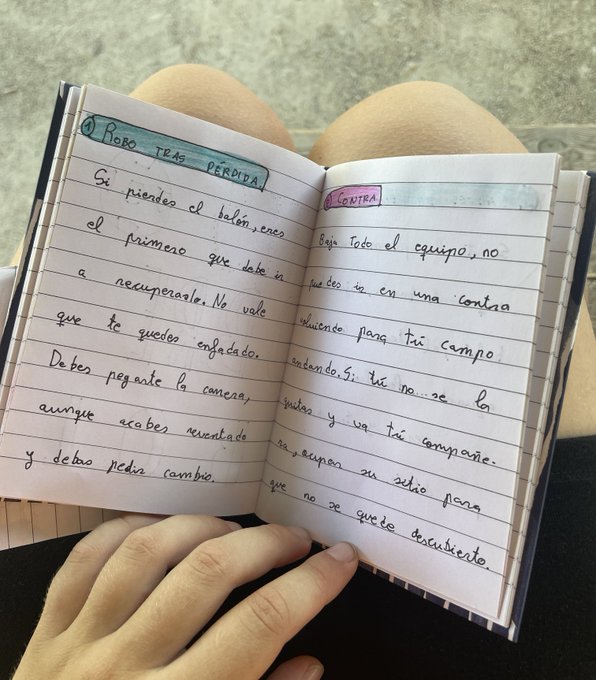 1) ROBO TRAS PÉRDIDA.
Si pierdes el balón, eres
el primero que debe ir
a recuperarlo. No vale
que te quedes enfadado.
Debes pegarte la carrera,
aunque acabes reventado
y debas pedir cambio.
CONTRA
Baja Todo el equipo, no
puedes ir en una contra
volviendo para tú campo
andando. Si tú no se la
quitas y va tú compañe-
ra, ocupas su sitio para
que no se quede descubierto.